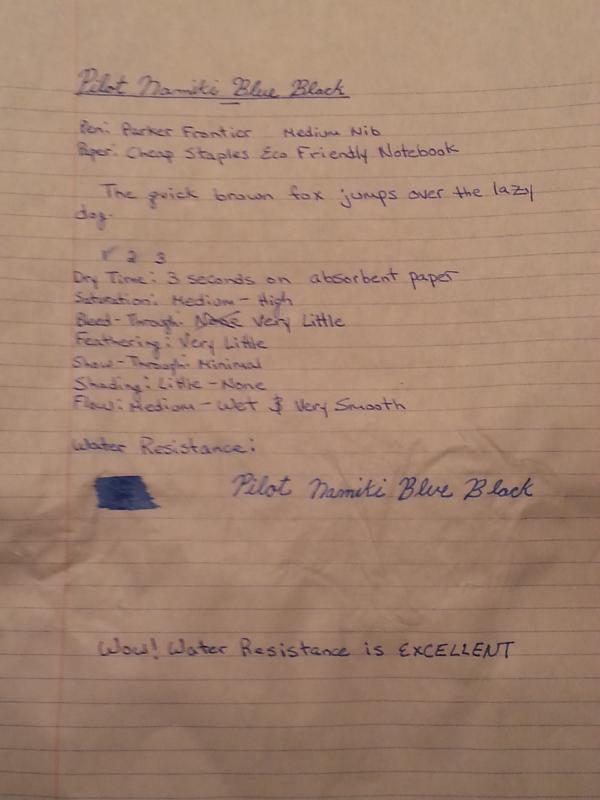 Pilot Namiki Blue Black
Pen: Parker Frontier Medium Nib
Paper: Cheap Staples Eco Friendly Notebook
The quick brown fox jumps over the lazy
dog.
1 2 3
Dry Time: 3 seconds on absorbent paper
Saturation: Medium - High
Bleed-Through: None Very Little
Feathering: Very Little
Show-Through: Minimal
Shading: Little - None
Flow: Medium - Wet & Very Smooth
Water Resistance:
Pilot Namiki Blue Black
Wow! Water Resistance is EXCELLENT